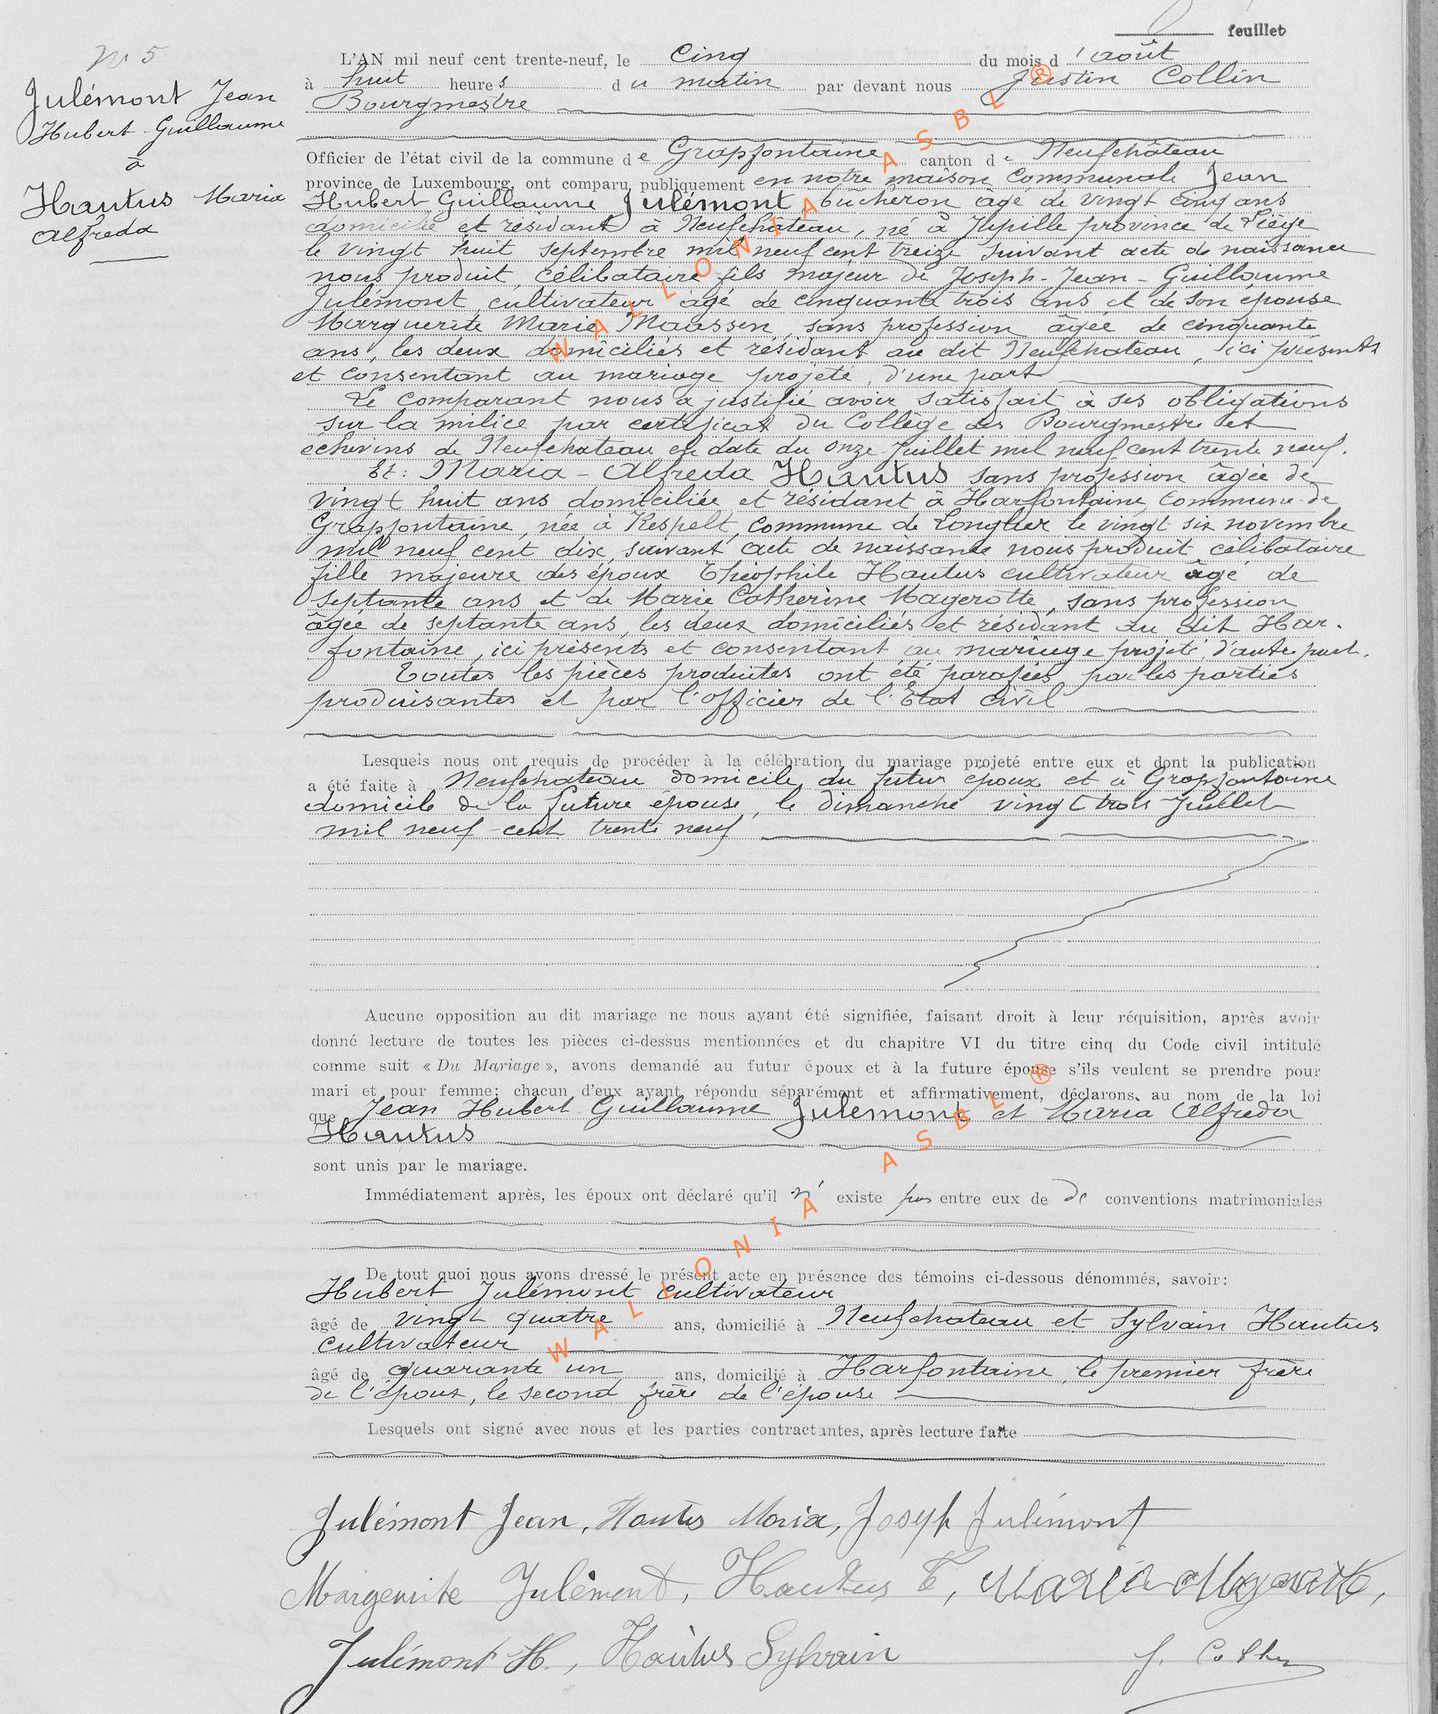 feuillet
N° 5
Julémont Jean
Hubert Guillaume
à
Hautus Maria
Alfreda
L'AN mil neuf cent trente-neuf, le cinq du mois d'août
à huit heures du matin par devant nous Justin Collin
Bourgmestre
Officier de l'état civil de la commune de Grapfontaine canton de Neufchâteau
province de Luxembourg, ont comparu publiquement en notre maison communale Jean
Hubert Guillaume Julémont bûcheron âgé de vingt cinq ans
domicilié et résidant à Neufchâteau, né à Jupille province de Liège
le vingt huit septembre mil neuf cent treize suivant acte de naissance
nous produit, célibataire fils majeur de Joseph-Jean-Guillaume
Julémont, cultivateur âgé de cinquante trois ans et de son épouse
Marguerite Marie Maassen, sans profession âgée de cinquante
ans, les deux domiciliés et résidant au dit Neufchateau, ici présents
et consentant au mariage projeté, d'une part
Le comparant nous a justifié avoir satisfait à ses obligations
sur la milice par certificat du Collège des Bourgmestre et
échevins de Neufchateau en date du onze Juillet mil neuf cent trente neuf.
Et: Maria-Alfreda Hautus sans profession âgée de
vingt huit ans domiciliée et résidant à Harfontaine, commune de
Grapfontaine, née à Respelt, commune de Longlier le vingt six novembre
mil neuf cent dix, suivant acte de naissance nous produit célibataire
fille majeure des époux Théophile Hautus cultivateur âgé de
septante ans et de Marie Catherine Magerotte, sans profession
âgée de septante ans, les deux domiciliés et résidant au dit Har-
fontaine, ici présents et consentant au mariage projeté, d'autre part.
Toutes les pièces produites ont été parafées par les parties
produisantes et par l'officier de l'Etat Civil
Lesquels nous ont requis de procéder à la célébration du mariage projeté entre eux et dont la publication
a été faite à Neufchateau domicile du futur époux et à Grapfontaine
domicile de la future épouse, le dimanche vingt trois Juillet
mil neuf cent trente neuf
Aucune opposition au dit mariage ne nous ayant été signifiée, faisant droit à leur réquisition, après avoir
donné lecture de toutes les pièces ci-dessus mentionnées et du chapitre VI du titre cinq du Code civil intitulé
comme suit « Du Mariage », avons demandé au futur époux et à la future épouse s'ils veulent se prendre pour
mari et pour femme; chacun d'eux ayant répondu séparément et affirmativement, déclarons au nom de la loi
que Jean Hubert Guillaume Julémont et Maria Alfreda
Hautus
sont unis par le mariage.
Immédiatement après, les époux ont déclaré qu'il n' existe pas entre eux de de conventions matrimoniales
De tout quoi nous avons dressé le présent acte en présence des témoins ci-dessous dénommés, savoir:
Hubert Julémont cultivateur
âgé de vingt quatre ans, domicilié à Neufchateau et Sylvain Hautus
cultivateur
âgé de quarante un ans, domicilié à Harfontaine, le premier frère
de l'époux, le second frère de l'épouse
Lesquels ont signé avec nous et les parties contractantes, après lecture faite
Julémont Jean, Hautus Maria, Joseph Julémont
Marguerite Julémont, Hautus T, Maria Magerotte,
Julémont H., Hautus Sylvain J. Collin
WALLONIA ASBL ®
WALLONIA ASBL ®